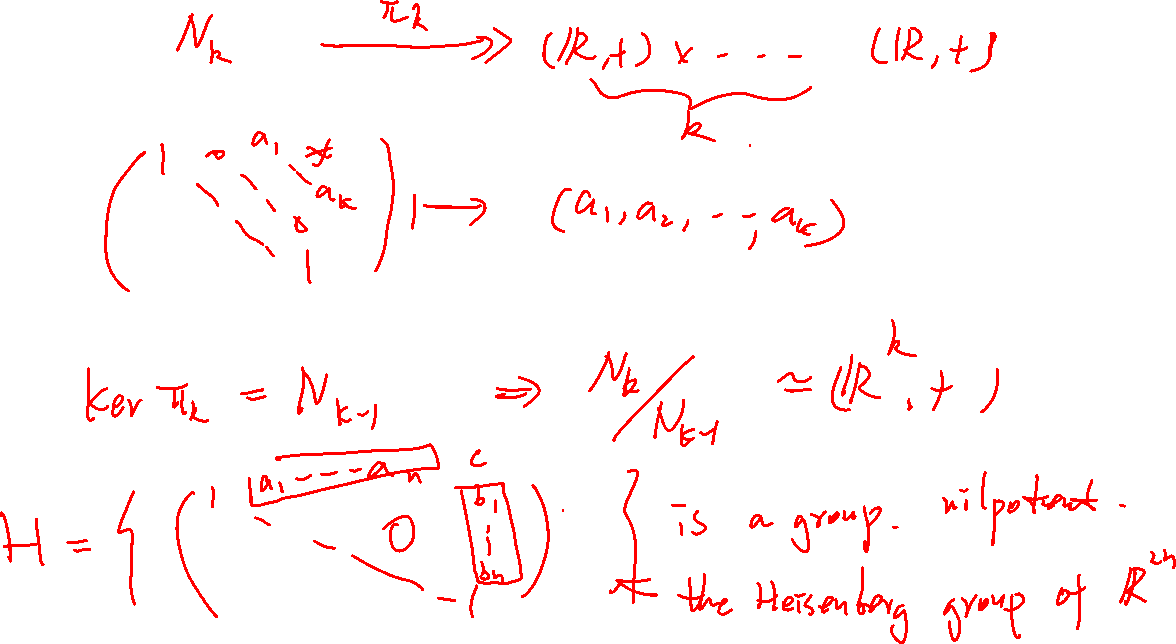 N_k \xrightarrow{\pi_k} (ℝ,+) × - - - (ℝ,+)
k.
( 1 0 a_1 * a_k 0 1 ) ↦ (a_1, a_2, - -, a_k)
ker π_k = N_{k-1} ⇒ N_k / N_{k-1} ≃ (ℝ^k, +)
H = { ( 1 a_1 - - - a_n c 0 b_1 ⋮ b_n 1 ) } is a group. nilpotent.
the Heisenberg group of ℝ^{2n}